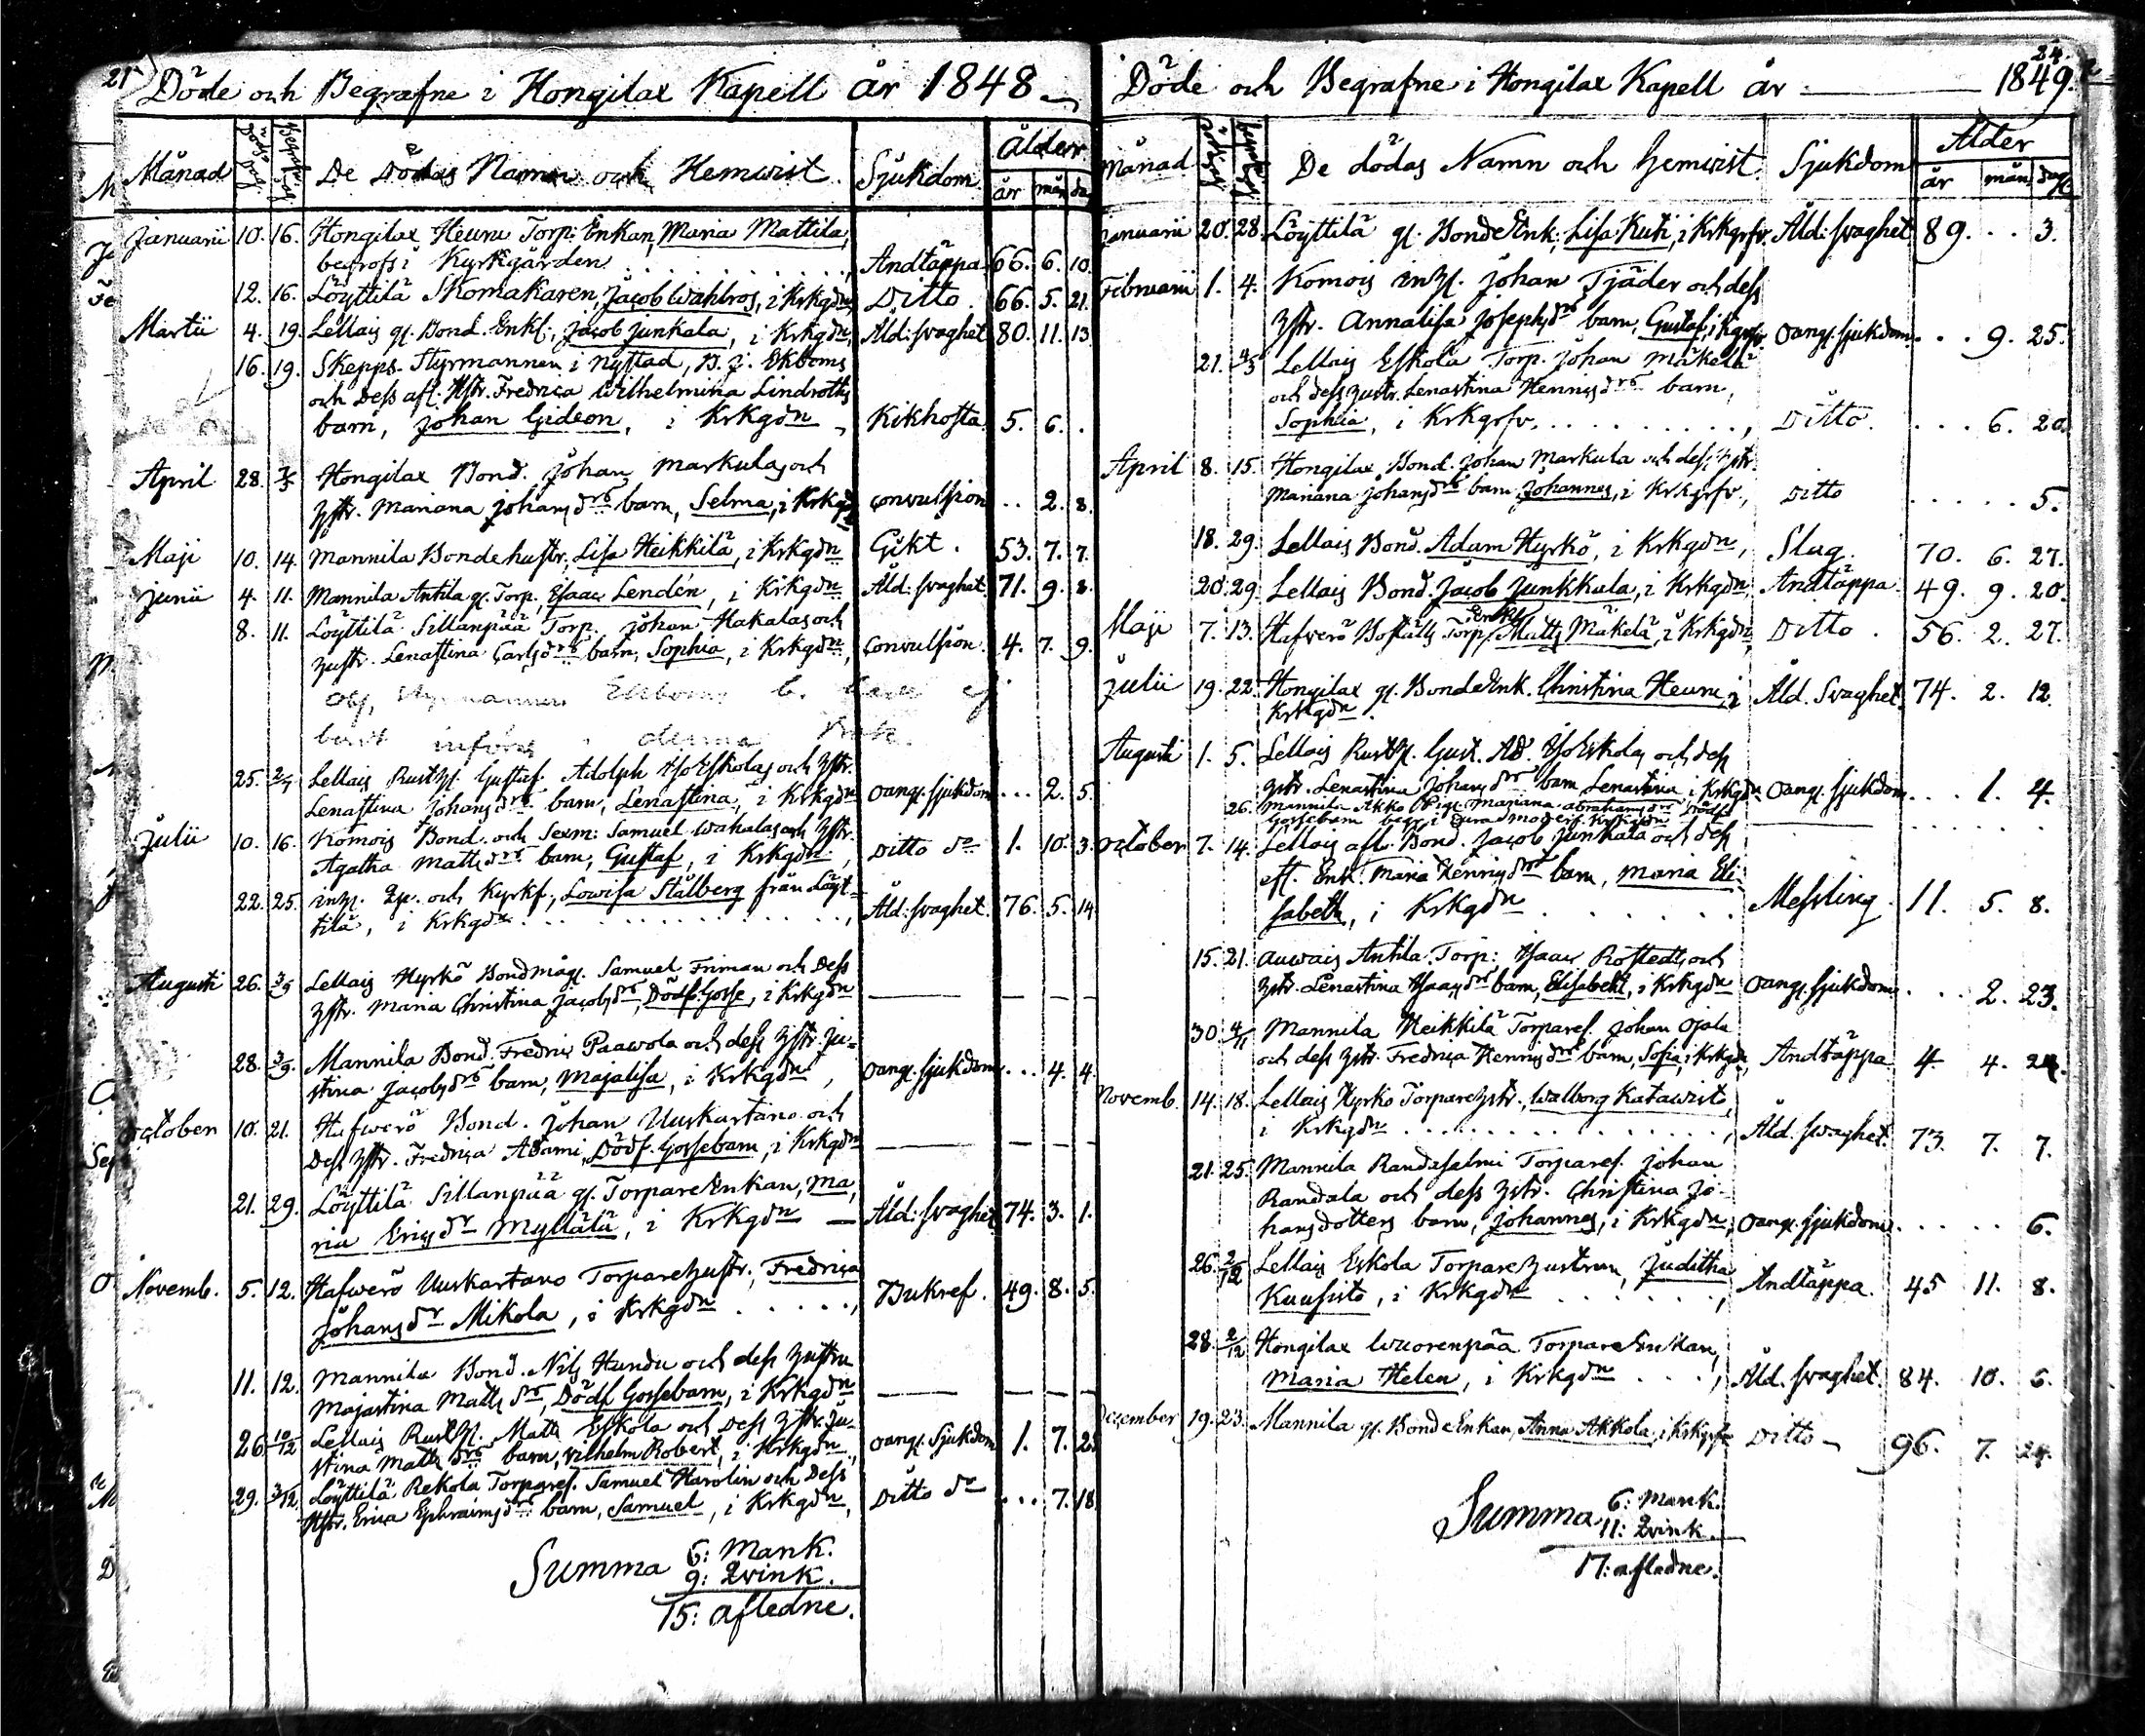 21
Döde och Begrafne i Hongilax Kapell år 1848
Månad
Döds dag
Begrafn. dag
De Dödas Namn och Hemwist.
Sjukdom
Ålder
år mån da
Januarii 10. 16. Hongilax Heunu Torp. Enkan, Maria Mattila,
begrofs i Kyrkgården Andtäppa 66. 6. 10.
12. 16. Löyttilä Skomakaren, Jacob Wahlros, i Krkgdn, Ditto. 66. 5. 21.
Martii 4. 19. Lellais gl. Bond. Enkl: Jacob Junkala, i Krkgdn, Åld: svaghet 80. 11. 13.
16. 19. Skepps-Styrmannen i Nystad, B. J. Ekboms
och Dess afl. Hstr. Fredrica Wilhelmina Lindroths
barn, Johan Gideon, i Krkgdn Kikhosta. 5. 6. .
April 28. 7/5 Hongilax Bond. Johan Markulas och
Hstr. Mariana Johansdrs barn, Selma, i Krkgd convulsion .. 2. 8.
Maji 10. 14. Mannila Bondehustr. Lisa Heikkilä, i Krkgdn Gikt. 53. 7. 7.
Junii 4. 11. Mannila Antila gl. Torp. Esaac Lendén, i Krkgdn. Åld: svaghet 71. 9. 8.
8. 11. Löyttilä Sillanpää Torp. Johan Hakalas och
Hustr. Lenastina Carlsdrs barn, Sophia, i Krkgdn, Convulsion. 4. 7. 9.
Obs, Styrmannen Ekboms
bordt införas i denna Bok.
25. 2/7 Lellais Rusth. Gustaf Adolph Iso Eskolas och Hstr.
Lenastina Johansdrs barn, Lenastina, i Krkgdn oang. sjukdom ... 2. 5.
Julii 10. 16. Komois Bond. och Sexm: Samuel Wahalas och Hstr.
Agatha Mattsdrs barn, Gustaf, i Krkgdn, Ditto do 1. 10. 3.
22. 25. inh. och Kyrkf., Lowisa Stålberg från Löyt-
tilä, i Krkgdn Åld: svaghet. 76. 5. 14
Augusti 26. 3/9 Lellais Hyrkö Bondmåg. Samuel Friman och Dess
Hstr. Maria Christina Jacobsdrs, Dödf. Gosse, i Krkgdn
28. 3/9. Mannila Bond. Fredric Paawola och dess Hstr. Ju-
stina Jacobsdrs barn, Majalisa, i Krkgdn, oang. sjukdom ... 4. 4.
October 10. 21. Hafwerö Bond. Johan Uuskartano och
Dess Hstr. Fredrica Adami, Dödf. Gossebarn, i Krkgdn
21. 29. Löyttilä Sillanpää gl. TorpareEnkan, Ma-
ria Ericsdr Myllälä, i Krkgdn Åld: svaghet 74. 3. 1.
Novemb. 5. 12. Hafwerö Uuskartano TorpareHustr., Fredrica
Johansdr Mikola, i Krkgdn Bukref. 49. 8. 5.
11. 12. Mannila Bond. Nils Hundu och dess Hustru
Majastina Mattsdrs, Dödf Gossebarn, i Krkgdn
26. 10/12 Lellais Rusth. Matts Eskola och Dess Hstr. Ju-
stina Mattsdrs barn, Vilhelm Robert, i Krkgdn, oang. Sjukdom 1. 7. 25
29. 3/12. Löyttilä Rekola Torparef. Samuel Harolin och Dess
Hstr. Erica Ephraimsdrs barn, Samuel, i Krkgdn, Ditto do ... 7. 18.
Summa 6: Mank.
9: Qvink.
15: afledne.
24.
Döde och Begrafne i Hongilax Kapell år 1849.
Månad
De dödas Namn och hemvist
Sjukdom
Ålder
år mån dag
Januarii 20. 28. Löyttilä gl. BondeEnk: Lisa Kuti, i Krkgrfv. Åld: svaghet 89. .. 3.
Februarii 1. 4. Komois inh. Johan Tjäder och dess
Hstr. Annalisa Josephsdrs barn, Gustaf, i Kgrfv. oang. sjukdom ... 9. 25.
21. 4/3 Lellais Eskola Torp. Johan Mäkelä
och dess Hustr. Lenastina Henricsdrs barn,
Sophia, i Krkgrfv. Ditto. ... 6. 20.
April 8. 15. Hongilax Bond. Johan Markula och dess Hstr.
Mariana Johansdrs barn, Johannes, i Krkgrfv., Ditto ..... 5.
18. 29. Lellais Bond. Adam Hyrkö, i Krkgdn, Slag. 70. 6. 27.
20. 29. Lellais Bond. Jacob Junkkula, i Krkgdn, Andtäppa 49. 9. 20.
Maji 7. 13. Hafwerö Boställs Torp. Enkl. Matts Mäkelä, i Krkgdn, Ditto. 56. 2. 27.
Julii 19. 22. Hongilax gl. BondeEnk. Christina Heunu, i
Krkgdn. Åld. Svaghet 74. 2. 12.
Augusti 1. 5. Lellais Rusth. Gust. Ad. IsoEskolas och dess
Hstr. Lenastina Johansdrs barn Lenastina i Krkgdn Oang. sjukdom ... 1. 4.
26. Mannila Akko Pig. Mariana Abrahamsdrs Dödf.
Gossebarn begr. i Eura moderk. Krkgdn
October 7. 14. Lellais afl. Bond. Jacob Junkala och dess
eft. Enk. Maria Henricsdrs barn, Maria Eli-
sabeth, i Krkgdn Messling. 11. 5. 8.
15. 21. Auwais Antila Torp: Isaac Rostedts och
Hstr. Lenastina Isaacsdrs barn, Elisabeth, i Krkgdn Oang. sjukdom ... 2. 23.
30 4/11 Mannila Heikkilä Torparef. Johan Ojala
och dess Hstr. Fredrica Henricsdrs barn, Sofia, i Krkgdn, Andtäppa 4. 4. 24.
Novemb. 14. 18. Lellais Hyrkö TorpareHstr., Walborg Katawisto,
i Krkgdn Åld. svaghet. 73. 7. 7.
21. 25. Mannila Randasalmi Torparef. Johan
Randala och dess Hstr. Christina Jo-
hansdotters barn, Johannes, i Krkgdn, Oang. sjukdom ..... 6.
26. 2/12 Lellais Eskola TorpareHustrun, Juditha
Kuusisto, i Krkgdn Andtäppa. 45 11. 8.
28. 2/12 Hongilax Wuorenpää TorpareEnkan,
Maria Helen, i Krkgdn Åld. svaghet. 84. 10. 6.
December 19. 23. Mannila gl. BondeEnkan, Anna Akkola, i Krkgrfv Ditto 96. 7. 24.
Summa 6: Mank.
11: Qvink.
17: afledne.